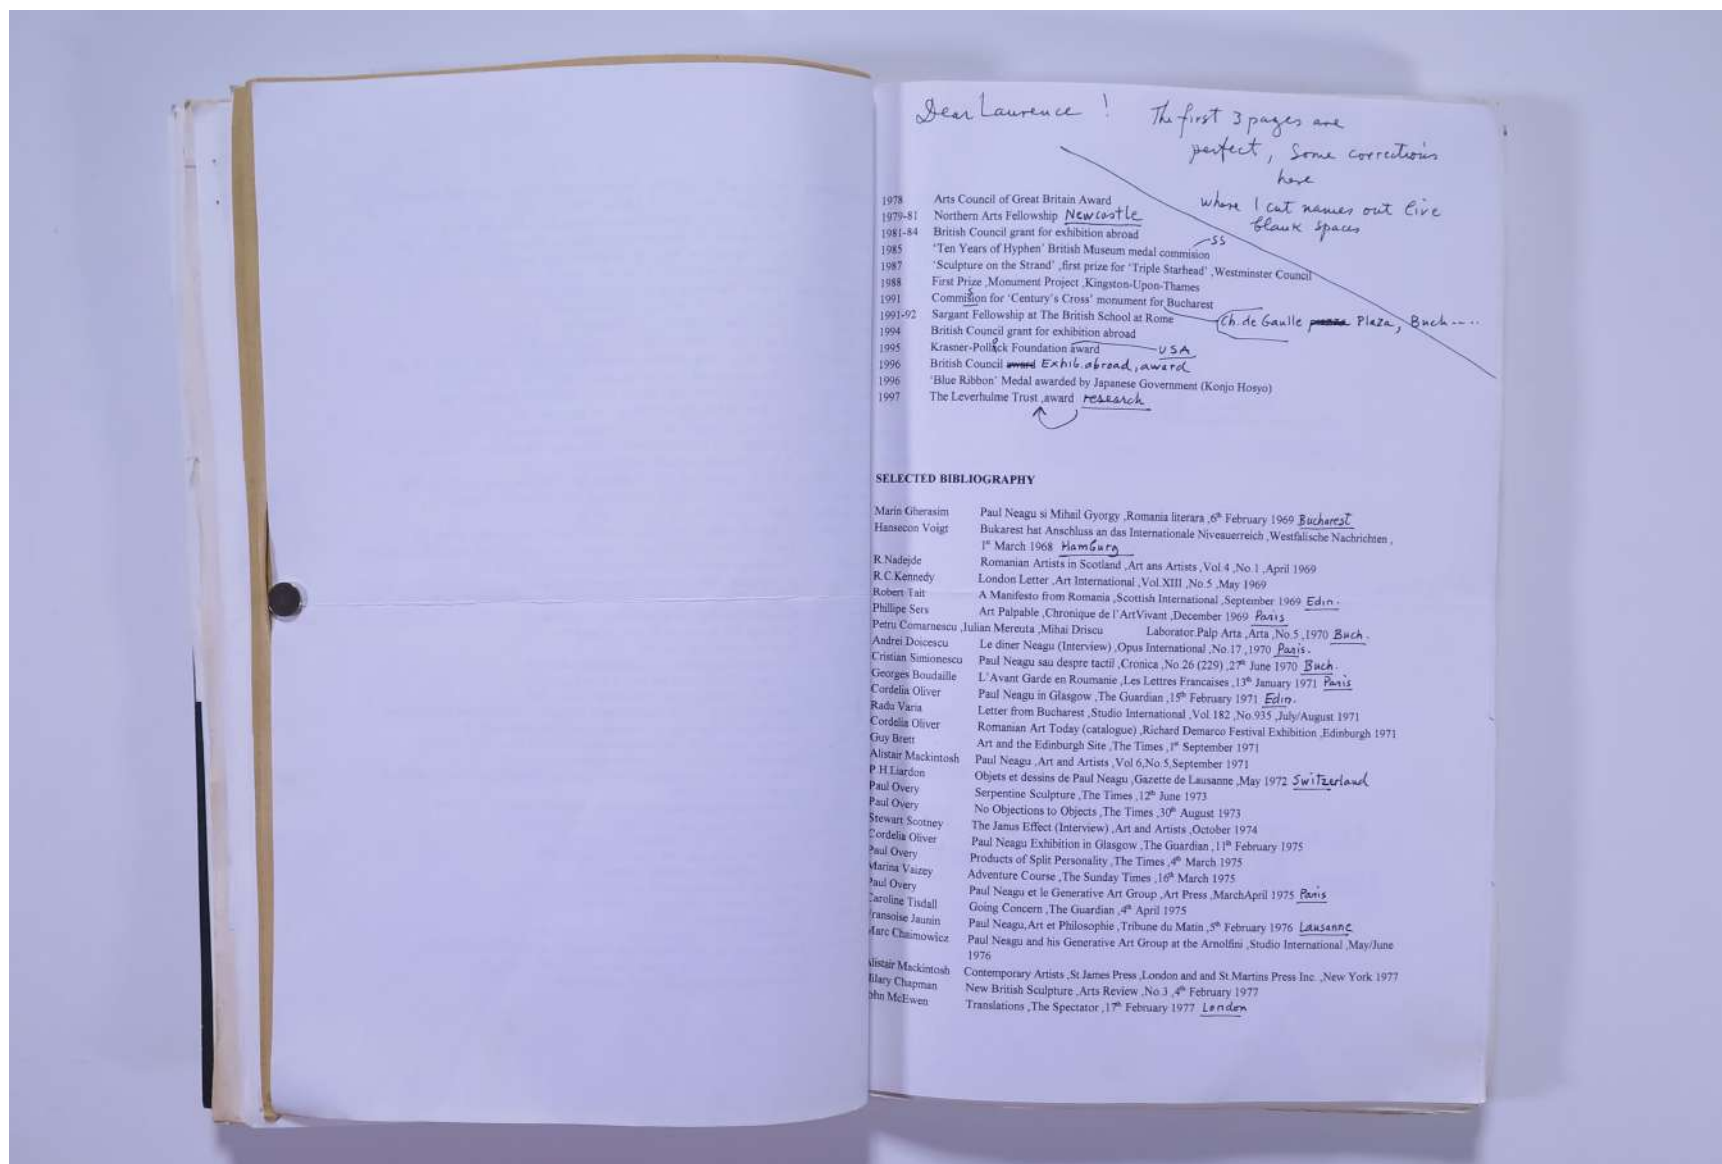 Dear Laurence ! The first 3 pages are
perfect, Some corrections
here
where I cut names out live
blank spaces
1978 Arts Council of Great Britain Award
1979-81 Northern Arts Fellowship Newcastle
1981-84 British Council grant for exhibition abroad
ss
1985 'Ten Years of Hyphen' British Museum medal commision
1987 'Sculpture on the Strand' ,first prize for 'Triple Starhead' ,Westminster Council
1988 First Prize ,Monument Project ,Kingston-Upon-Thames
1991 Commission for 'Century's Cross' monument for Bucharest
1991-92 Sargant Fellowship at The British School at Rome Ch. de Gaulle Plaza, Buch....
1994 British Council grant for exhibition abroad
1995 Krasner-Pollock Foundation award USA
1996 British Council award Exhib. abroad, award
1996 'Blue Ribbon' Medal awarded by Japanese Government (Konjo Hosyo)
1997 The Leverhulme Trust ,award research
SELECTED BIBLIOGRAPHY
Marin Gherasim Paul Neagu si Mihail Gyorgy ,Romania literara ,6th February 1969 Bucharest
Hansecon Voigt Bukarest hat Anschluss an das Internationale Niveauerreich ,Westfalische Nachrichten ,
1st March 1968 Hamburg
R.Nadejde Romanian Artists in Scotland ,Art ans Artists ,Vol 4 ,No.1 ,April 1969
R.C.Kennedy London Letter ,Art International ,Vol.XIII ,No.5 ,May 1969
Robert Tait A Manifesto from Romania ,Scottish International ,September 1969 Edin.
Phillipe Sers Art Palpable ,Chronique de l'ArtVivant ,December 1969 Paris
Petru Comarnescu ,Iulian Mereuta ,Mihai Driscu Laborator.Palp Arta ,Arta ,No.5 ,1970 Buch.
Andrei Doicescu Le diner Neagu (Interview) ,Opus International ,No.17 ,1970 Paris.
Cristian Simionescu Paul Neagu sau despre tactil ,Cronica ,No.26 (229) ,27th June 1970 Buch.
Georges Boudaille L'Avant Garde en Roumanie ,Les Lettres Francaises ,13th January 1971 Paris
Cordelia Oliver Paul Neagu in Glasgow ,The Guardian ,15th February 1971 Edin.
Radu Varia Letter from Bucharest ,Studio International ,Vol.182 ,No.935 ,July/August 1971
Cordelia Oliver Romanian Art Today (catalogue) ,Richard Demarco Festival Exhibition ,Edinburgh 1971
Guy Brett Art and the Edinburgh Site ,The Times ,1st September 1971
Alistair Mackintosh Paul Neagu ,Art and Artists ,Vol 6,No.5,September 1971
P.H.Liardon Objets et dessins de Paul Neagu ,Gazette de Lausanne ,May 1972 Switzerland
Paul Overy Serpentine Sculpture ,The Times ,12th June 1973
Paul Overy No Objections to Objects ,The Times ,30th August 1973
Stewart Scotney The Janus Effect (Interview) ,Art and Artists ,October 1974
Cordelia Oliver Paul Neagu Exhibition in Glasgow ,The Guardian ,11th February 1975
Paul Overy Products of Split Personality ,The Times ,4th March 1975
Marina Vaizey Adventure Course ,The Sunday Times ,16th March 1975
Paul Overy Paul Neagu et le Generative Art Group ,Art Press ,MarchApril 1975 Paris
Caroline Tisdall Going Concern ,The Guardian ,4th April 1975
ransoise Jaunin Paul Neagu,Art et Philosophie ,Tribune du Matin ,5th February 1976 Lausanne
Marc Chaimowicz Paul Neagu and his Generative Art Group at the Arnolfini ,Studio International ,May/June
1976
Alistair Mackintosh Contemporary Artists ,St James Press ,London and and St.Martins Press Inc. ,New York 1977
Hilary Chapman New British Sculpture ,Arts Review ,No.3 ,4th February 1977
ohn McEwen Translations ,The Spectator ,17th February 1977 London